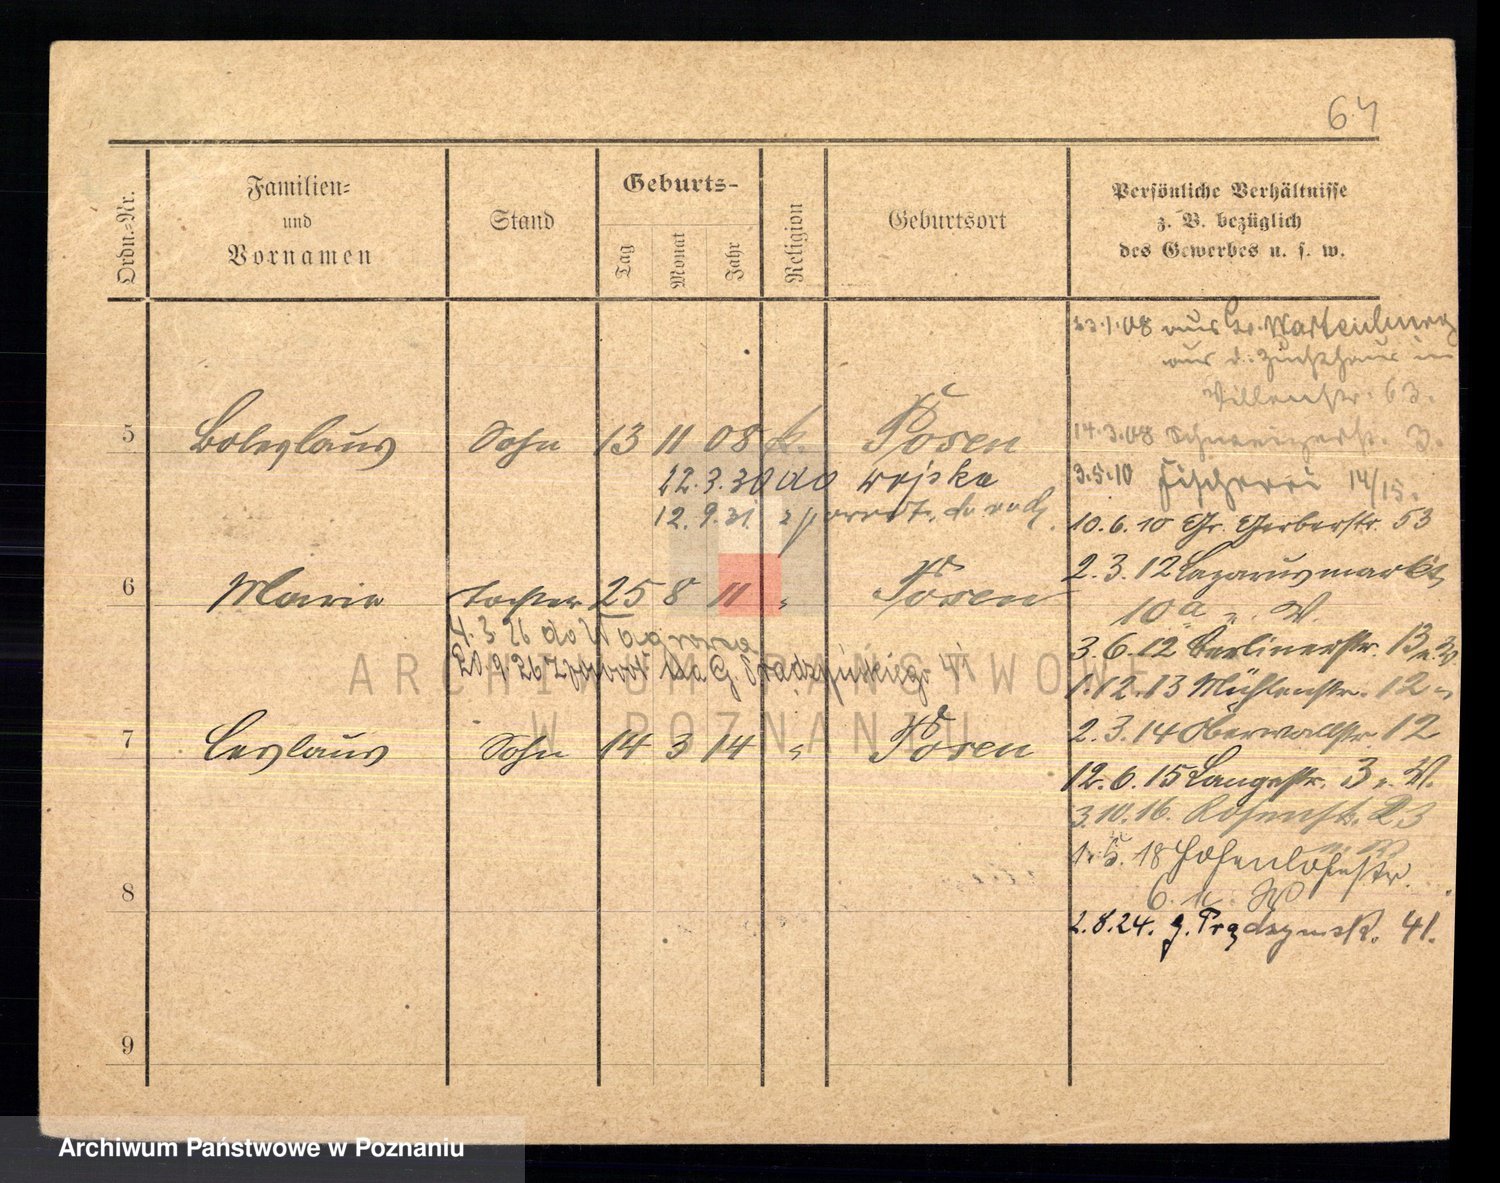 64
Ordn.-Nr.
Familien-
und
Vornamen
Stand
Geburts-
Tag
Monat
Jahr
Religion
Geburtsort
Persönliche Verhältnisse
z. B. bezüglich
des Gewerbes u. s. w.
23.1.08 aus Gr. Wartenberg
aus d. Zuchthaus in
Villenstr. 63.
5 Boleslaus Sohn 13 11 08 k. Posen
14.3.08 3.
22.3.30 do wojska
3.5.10 Fischerei 14/15.
12.9.31 z
10.6.10 Gr. Gerberstr. 53
2.3.12 Lazarusmarkt
6 Marie Tochter 25 8 11 " Posen
10a " W.
4.3.26 do Wągrowca
3.6.12 Berlinerstr. 13
20.9.26 z powrot na G. Prądzyńskiego 41
1.12.13 Mühlenstr. 12
2.3.14 Oberwallstr. 12
7 Ceslaus Sohn 14 3 14 " Posen
12.6.15 Langestr. 3 W.
3.10.16. Rosenstr. 23
1.5.18 Hohenlohestr.
6. W
8
2.8.24. g. Prądzyńsk. 41.
9
ARCHIWUM PAŃSTWOWE
W POZNANIU
Archiwum Państwowe w Poznaniu